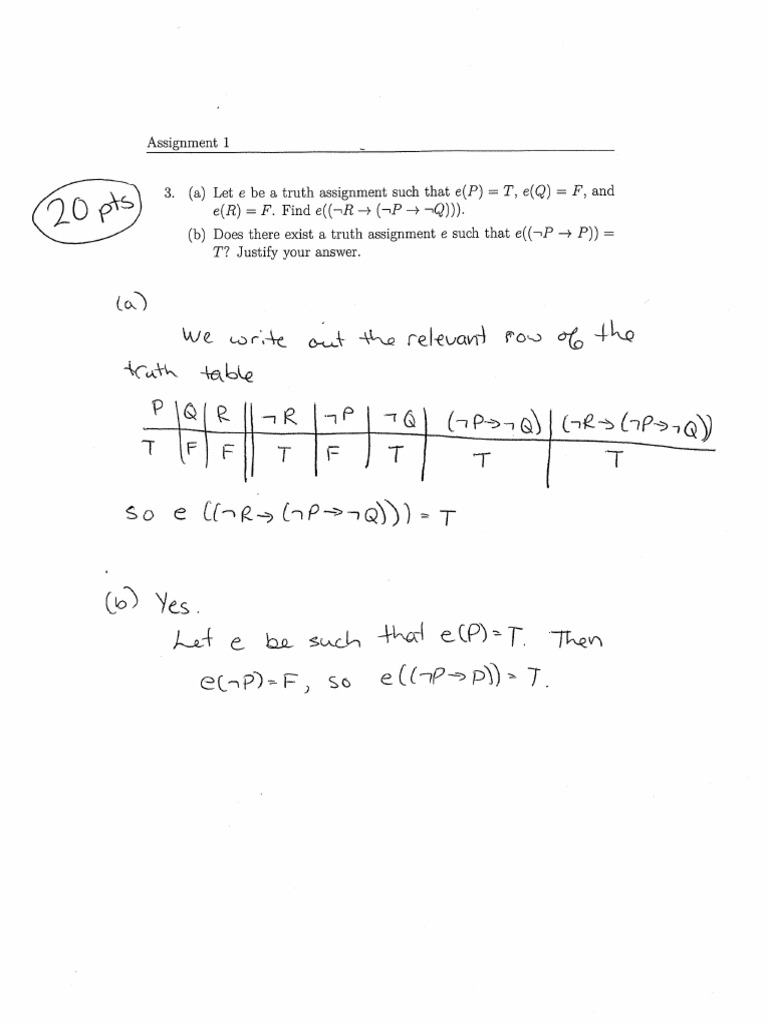 Assignment 1
20 pts
3. (a) Let e be a truth assignment such that e(P) = T, e(Q) = F, and
e(R) = F. Find e((¬R → (¬P → ¬Q))).
(b) Does there exist a truth assignment e such that e((¬P → P)) =
T? Justify your answer.
(a)
We write out the relevant row of the
truth table
P | Q | R || ¬R | ¬P | ¬Q | (¬P→¬Q) | (¬R→(¬P→¬Q))
T | F | F || T | F | T | T | T
so e((¬R→(¬P→¬Q))) = T
(b) Yes.
Let e be such that e(P)=T. Then
e(¬P)=F, so e((¬P→P))=T.